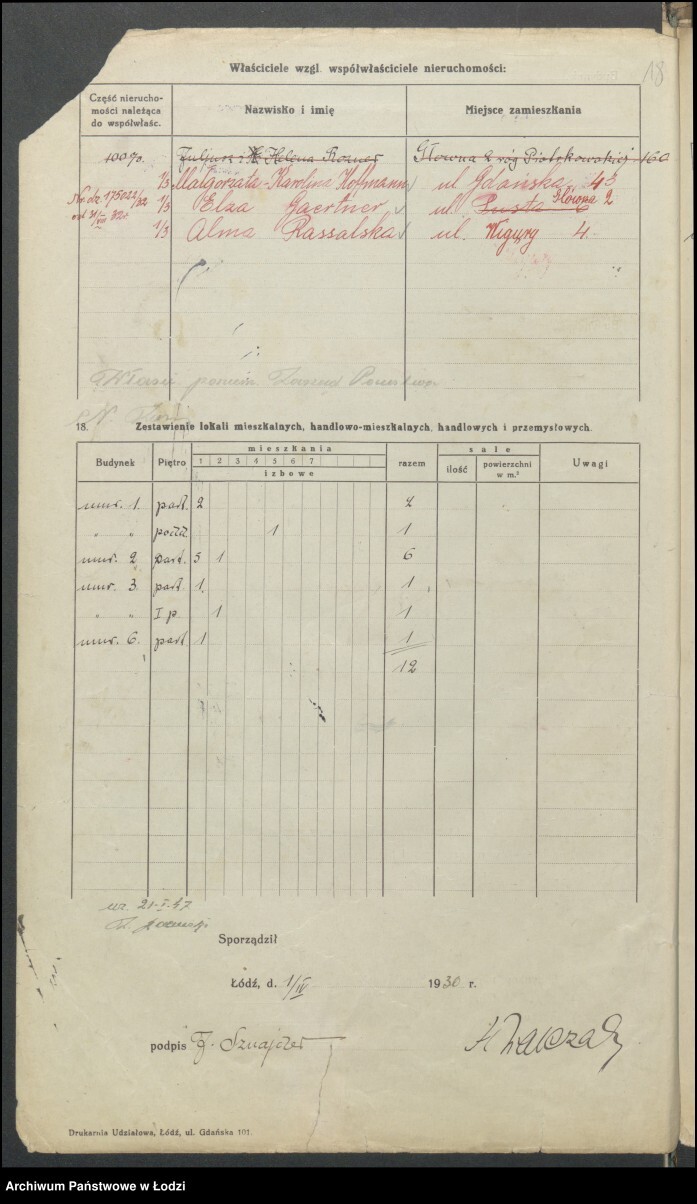 18
Właściciele wzgl. współwłaściciele nieruchomości:
Część nierucho-
mości należąca
do współwłaśc.
Nazwisko i imię
Miejsce zamieszkania
100% Juljusz i Helena Rozner Główna 2 róg Piotrkowskiej 160
1/3 Małgorzata-Karolina Hoffmann ul. Gdańska 43
No dz. 175022/32 1/3 Elza Gaertner ul. Pusta 6 Główna 2
od 31/VIII 32r. 1/3 Alma Rassalska ul. Wigury 4.
Zarząd
18. Zestawienie lokali mieszkalnych, handlowo-mieszkalnych, handlowych i przemysłowych.
Budynek Piętro mieszkania razem sale Uwagi
1 2 3 4 5 6 7
izbowe
ilość powierzchni
w m.²
nmr. 1. part. 2 2
" " 1 1
nmr. 2 part. 5 1 6
nmr. 3 part. 1 1
" " I p. 1 1
nmr. 6. part 1 1
12
21-I-47
Sporządził
Łódź, d. 1/IV 1930 r.
podpis F. Sznajder
Drukarnia Udziałowa, Łódź, ul. Gdańska 101.
Archiwum Państwowe w Łodzi